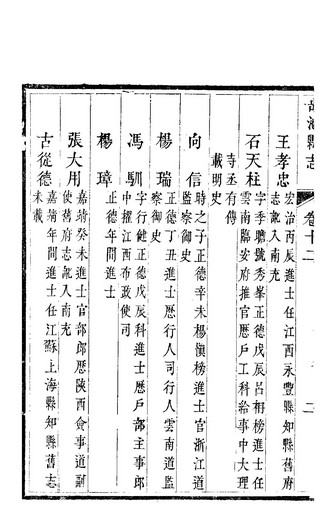 縣志 卷十二 二
王孝忠 宏治丙辰進士任江西永豐縣知縣舊府
志訛入南充
石天柱 字季瞻號秀峯正德戊辰呂柟榜進士任
雲南臨安府推官歷戶工科給事中大理
寺丞有傳
載明史
向信 時之子正德辛未楊愼榜進士官浙江道
監察御史
楊瑞 正德丁丑進士歷行人司行人雲南道監
察御史
馮馴 字行健正德戊辰科進士歷戶部主事郎
中擢江西布政使司
楊瑋 正德年進士
張大用 嘉靖癸未進士官部郎歷陝西僉事道副
使舊府志訛入南充
古從德 嘉靖年間進士任江蘇上海縣知縣舊志
未載